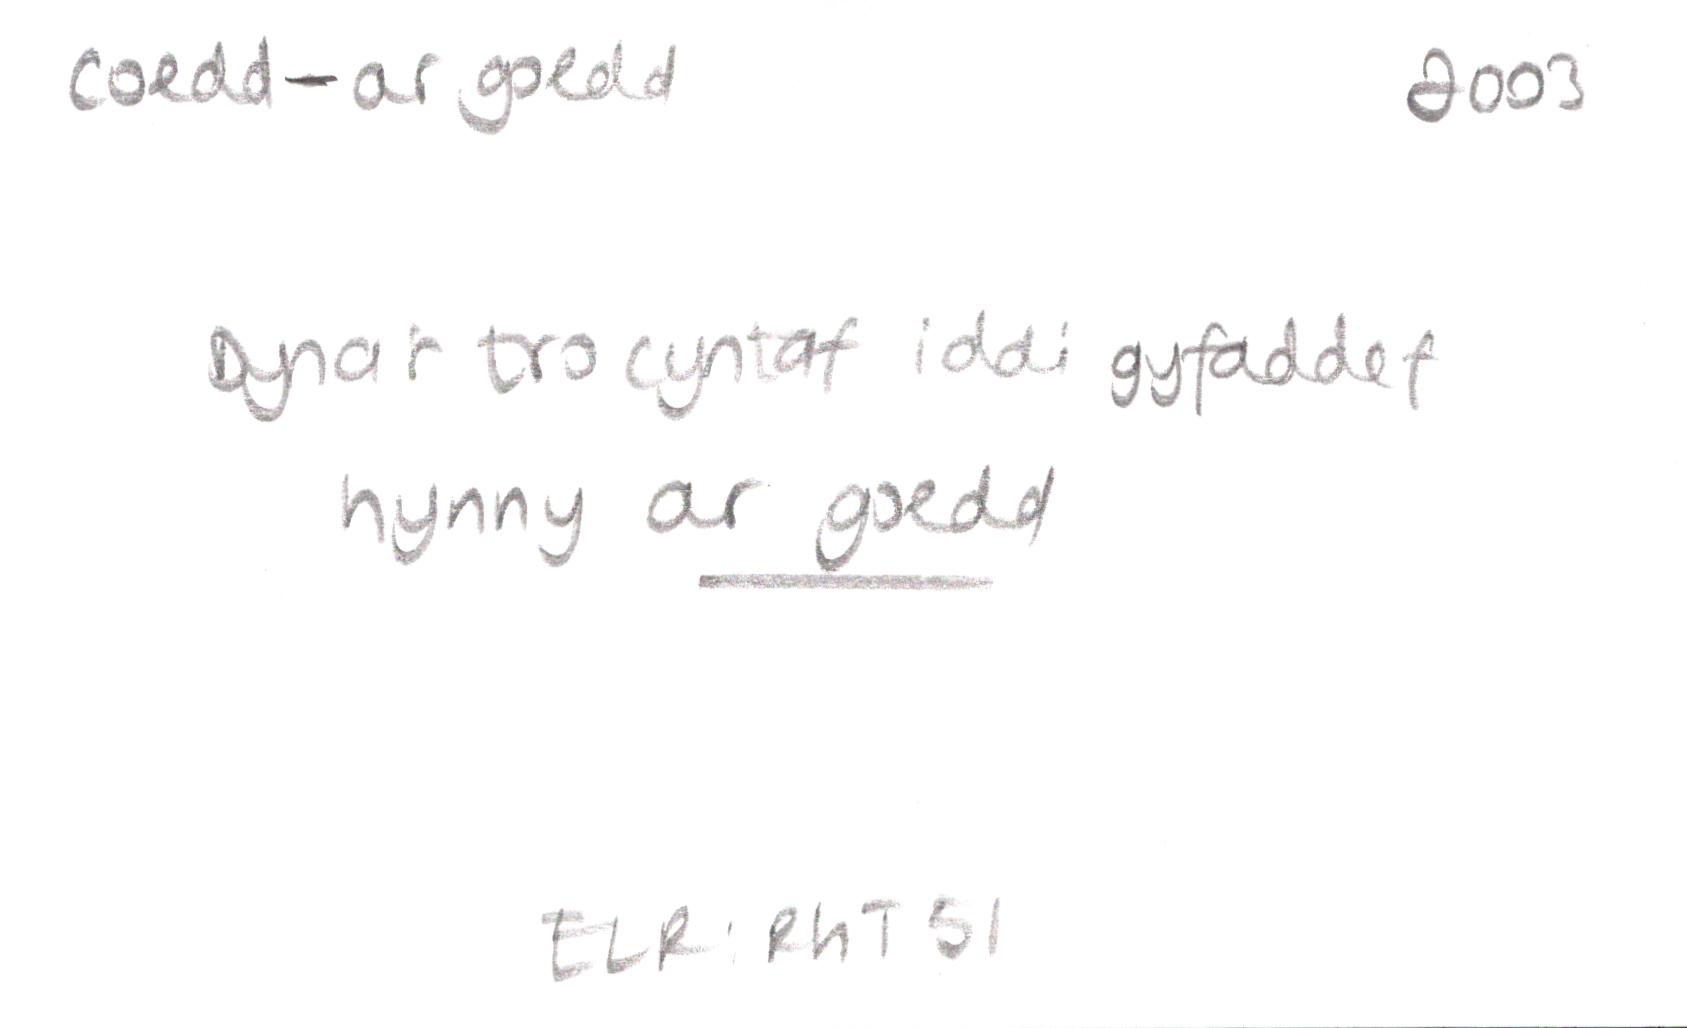 coedd - ar goedd 2003
Dyna'r tro cyntaf iddi gyfaddef
hynny ar goedd
ELR: RhT 51